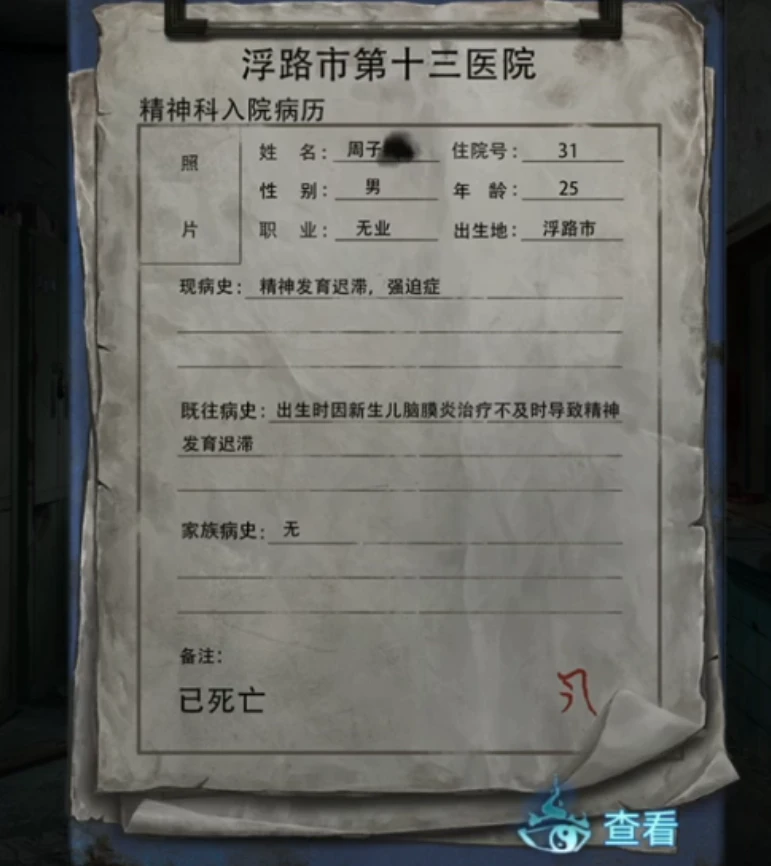 浮路市第十三医院
精神科入院病历
照片
姓 名：周子 住院号：31
性 别：男 年 龄：25
职 业：无业 出生地：浮路市
现病史：精神发育迟滞，强迫症
既往病史：出生时因新生儿脑膜炎治疗不及时导致精神
发育迟滞
家族病史：无
备注：
已死亡
查看